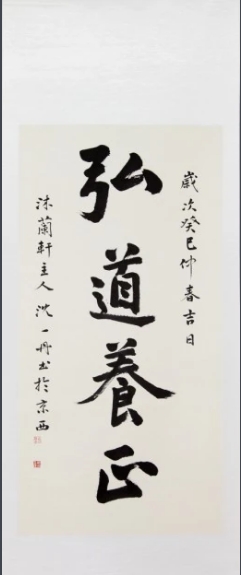 歲次癸巳仲春吉日
弘道養正
沐蘭軒主人沈一丹書於京西